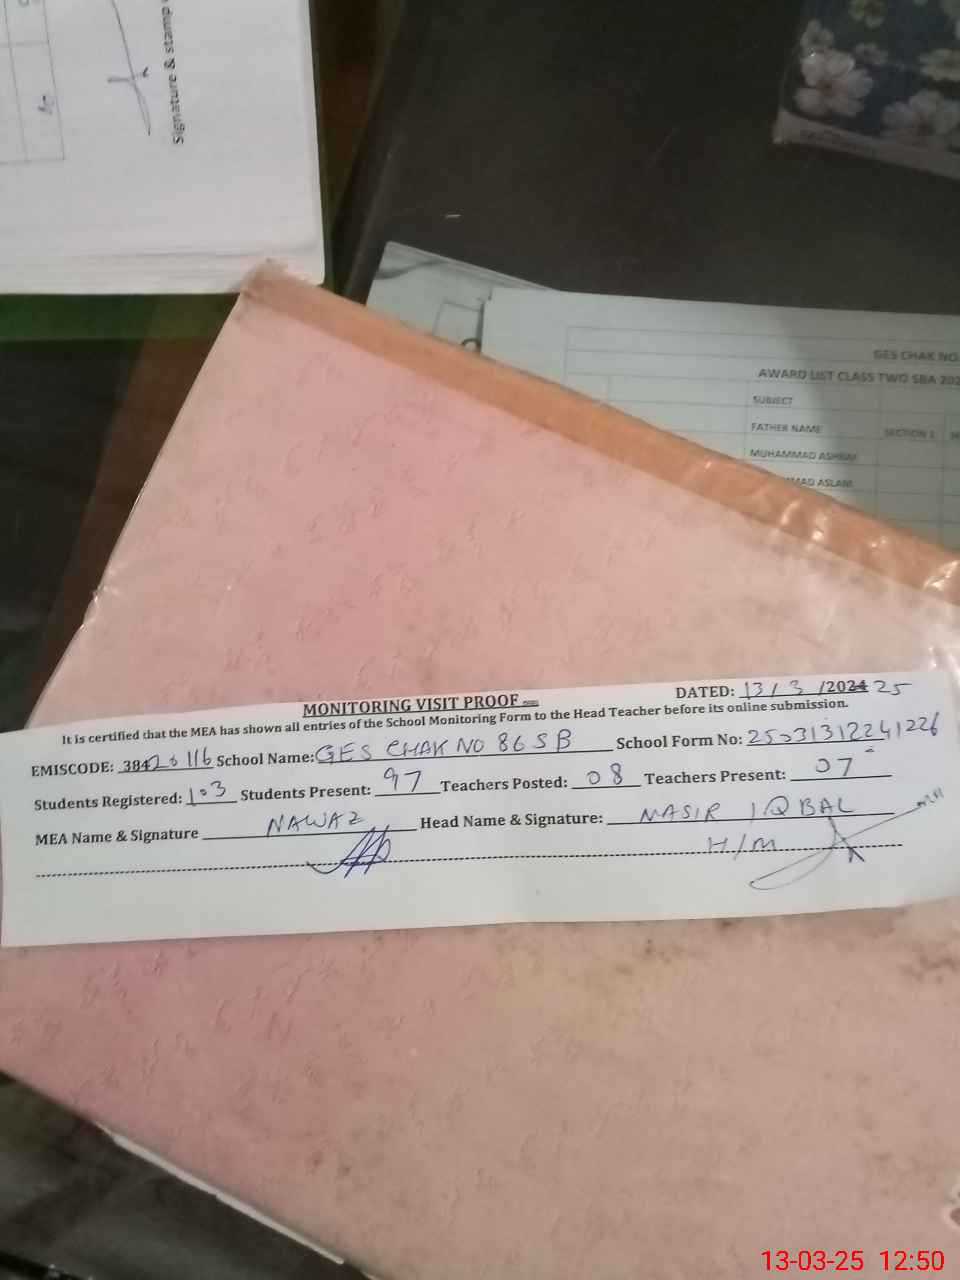 Signature & stamp
GES CHAK NO
AWARD LIST CLASS TWO SBA 202
SUBJECT
FATHER NAME SECTION 1
MUHAMMAD ASHRAF
MAD ASLAM
MONITORING VISIT PROOF DATED: 13/3/2024 25
It is certified that the MEA has shown all entries of the School Monitoring Form to the Head Teacher before its online submission.
EMISCODE: 38420116 School Name: GES CHAK NO 86 SB School Form No: 25031312241226
Students Registered: 103 Students Present: 97 Teachers Posted: 08 Teachers Present: 07
MEA Name & Signature NAWAZ Head Name & Signature: NASIR IQBAL
H/M
13-03-25 12:50